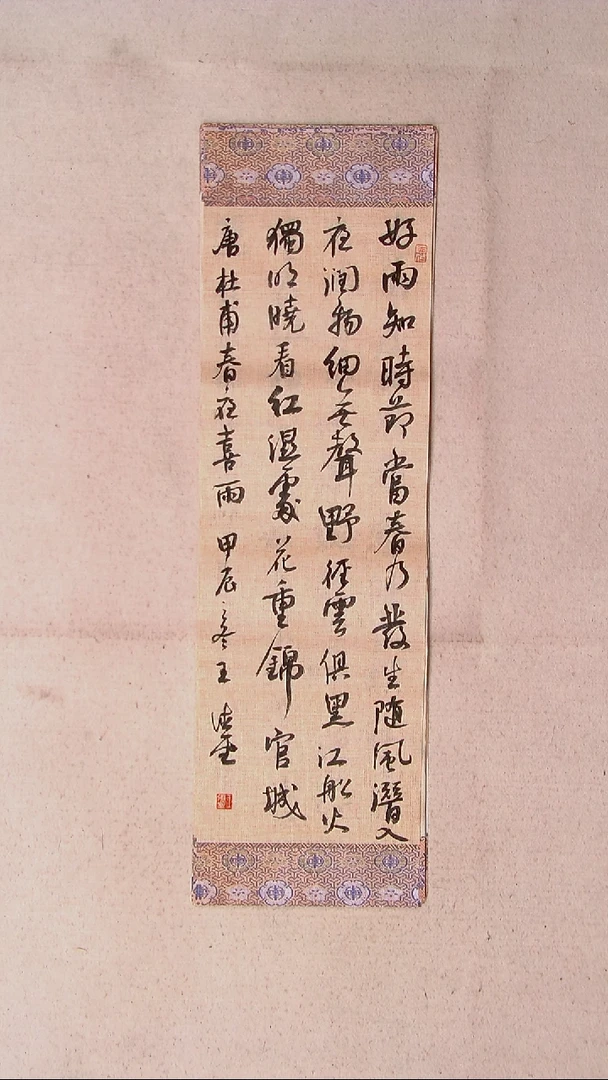 好雨知時節當春乃發生随風潛入
夜潤物細無聲野徑雲俱黑江船火
獨明曉看紅濕處花重錦官城
唐杜甫春夜喜雨 甲辰冬王